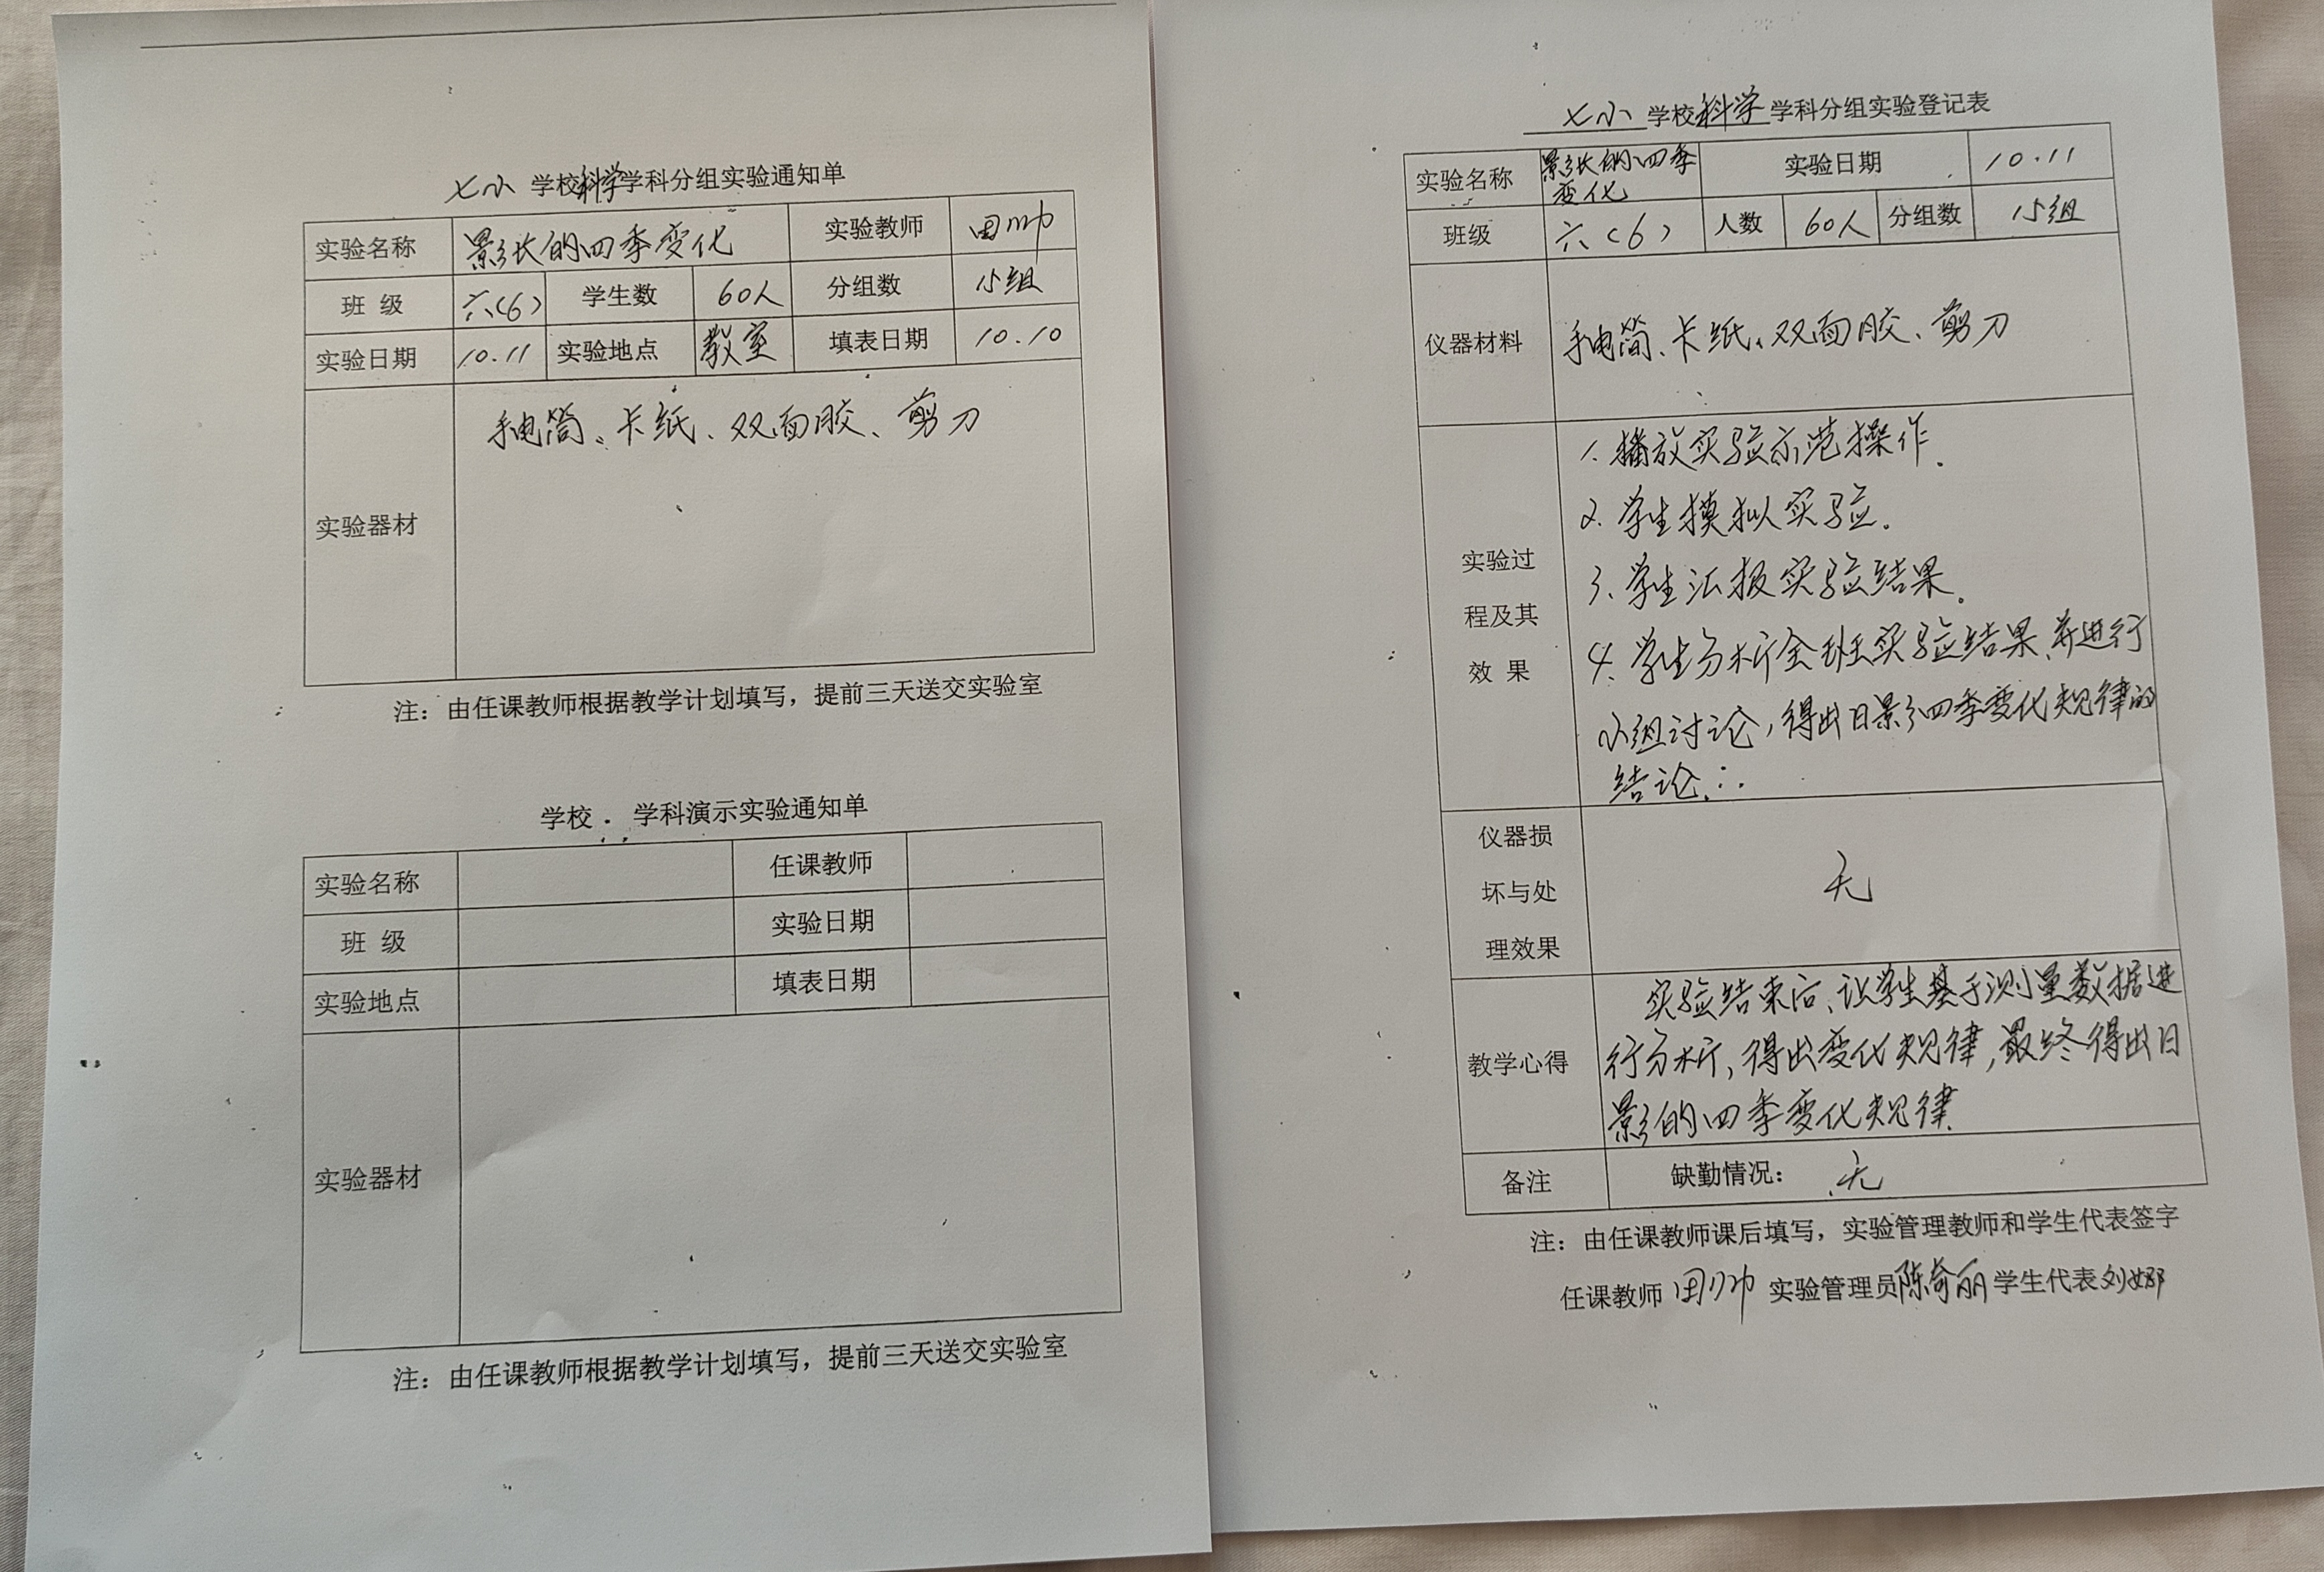 七小 学校科学学科分组实验通知单
实验名称 影长的四季变化 实验教师 田帅
班 级 六(6) 学生数 60人 分组数 15组
实验日期 10.11 实验地点 教室 填表日期 10.10
实验器材 手电筒、卡纸、双面胶、剪刀
注：由任课教师根据教学计划填写，提前三天送交实验室
学校 . 学科演示实验通知单
实验名称 任课教师
班 级 实验日期
实验地点 填表日期
实验器材
注：由任课教师根据教学计划填写，提前三天送交实验室
七小 学校科学学科分组实验登记表
实验名称 影长的四季变化 实验日期 10.11
班级 六(6) 人数 60人 分组数 15组
仪器材料 手电筒、卡纸、双面胶、剪刀
实验过
程及其
效 果
1. 播放实验示范操作.
2. 学生模拟实验.
3. 学生汇报实验结果.
4. 学生分析全班实验结果,并进行
小组讨论,得出日影四季变化规律的
结论.
仪器损
坏与处
理效果
无
教学心得
实验结束后、让学生基于测量数据进
行分析,得出变化规律,最终得出日
影的四季变化规律
备注 缺勤情况： 无
注：由任课教师课后填写，实验管理教师和学生代表签字
任课教师 田帅 实验管理员陈奇丽 学生代表刘娜